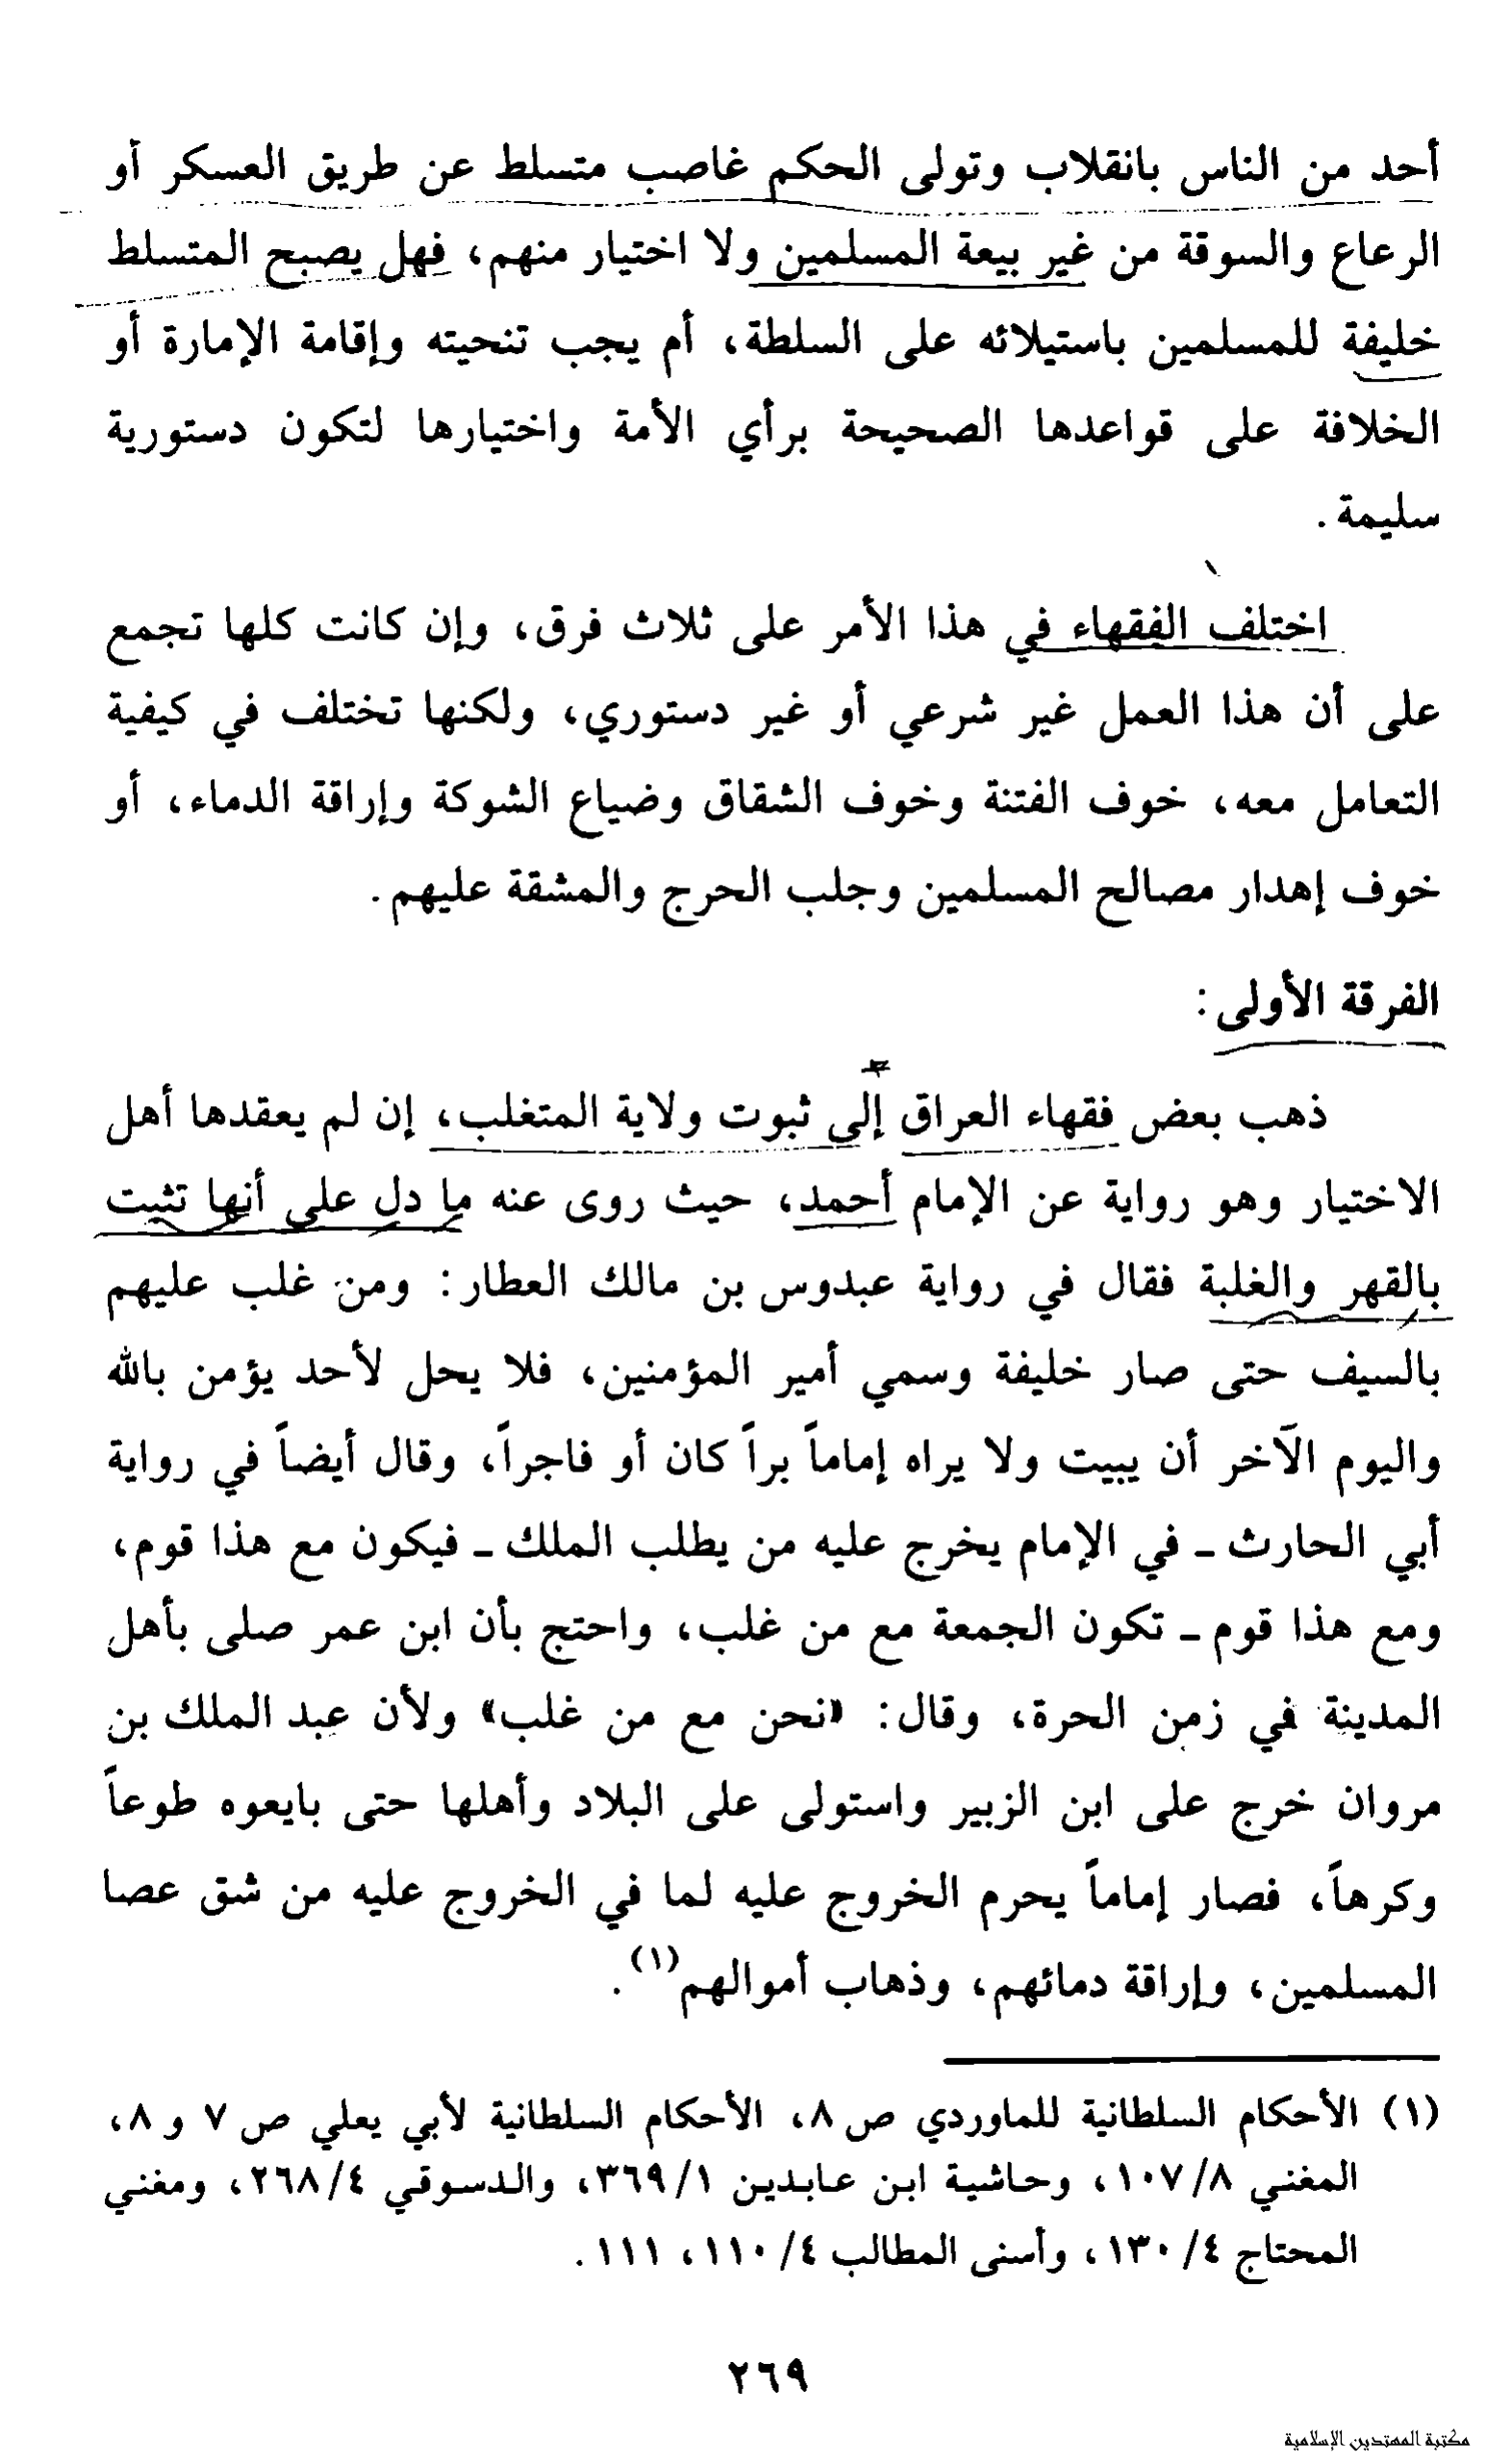 أحد من الناس بانقلاب وتولى الحكم غاصب متسلط عن طريق العسكر أو
الرعاع والسوقة من غير بيعة المسلمين ولا اختيار منهم، فهل يصبح المتسلط
خليفة للمسلمين باستيلائه على السلطة، أم يجب تنحيته وإقامة الإمارة أو
الخلافة على قواعدها الصحيحة برأي الأمة واختيارها لتكون دستورية
سليمة.
اختلف الفقهاء في هذا الأمر على ثلاث فرق، وإن كانت كلها تجمع
على أن هذا العمل غير شرعي أو غير دستوري، ولكنها تختلف في كيفية
التعامل معه، خوف الفتنة وخوف الشقاق وضياع الشوكة وإراقة الدماء، أو
خوف إهدار مصالح المسلمين وجلب الحرج والمشقة عليهم.
الفرقة الأولى:
ذهب بعض فقهاء العراق إلى ثبوت ولاية المتغلب، إن لم يعقدها أهل
الاختيار وهو رواية عن الإمام أحمد، حيث روى عنه ما دل على أنها تثبت
بالقهر والغلبة فقال في رواية عبدوس بن مالك العطار: ومن غلب عليهم
بالسيف حتى صار خليفة وسمي أمير المؤمنين، فلا يحل لأحد يؤمن بالله
واليوم الآخر أن يبيت ولا يراه إماماً براً كان أو فاجراً، وقال أيضاً في رواية
أبي الحارث ـ في الإمام يخرج عليه من يطلب الملك ـ فيكون مع هذا قوم،
ومع هذا قوم ـ تكون الجمعة مع من غلب، واحتج بأن ابن عمر صلى بأهل
المدينة في زمن الحرة، وقال: «نحن مع من غلب» ولأن عبد الملك بن
مروان خرج على ابن الزبير واستولى على البلاد وأهلها حتى بايعوه طوعاً
وكرهاً، فصار إماماً يحرم الخروج عليه لما في الخروج عليه من شق عصا
المسلمين، وإراقة دمائهم، وذهاب أموالهم(١).
(١) الأحكام السلطانية للماوردي ص ٨، الأحكام السلطانية لأبي يعلي ص ٧ و ٨،
المغني ٨/ ١٠٧، وحاشية ابن عابدين ١/ ٣٦٩، والدسوقي ٤/ ٢٦٨، ومغني
المحتاج ٤/ ١٣٠، وأسنى المطالب ٤/ ١١٠، ١١١.
٢٦٩
مكتبة المهتدين الإسلامية